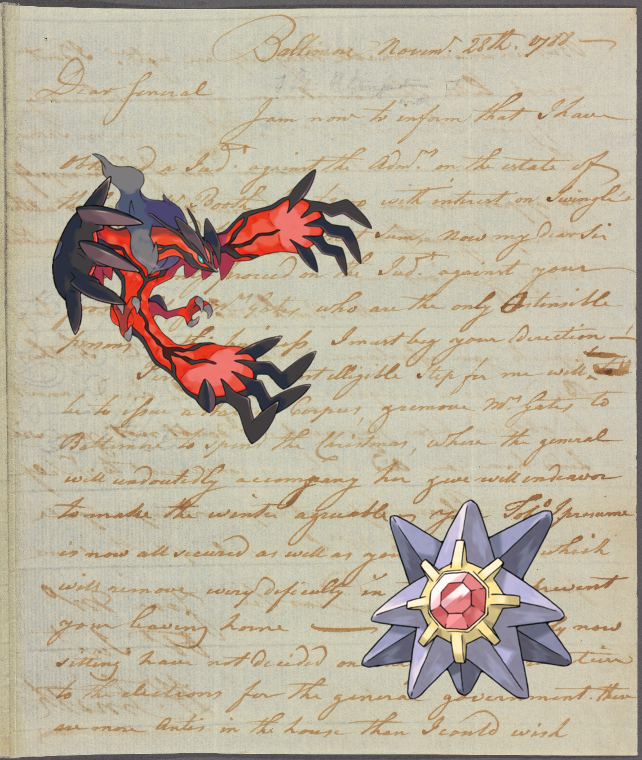 Baltimore Novemr. 28th. 1788 —
Dear General
I am now to inform that I have
a Judt. against the Admrs. on the estate of
Booth with interest on Swingle
Sum, Now my dear Sir
on the Judt. against your
Mr. Gates who are the only Ostensible
I must beg your directions —
Step for me will
be to issue a Corpus, & remove Mrs. Gates to
Baltimore to spend the Christmas, where the general
will undoubtedly accompany her & we will endeavor
to make the winter agreeable Tobo. I presume
is now all secured as well as which
will remove every dificulty in prevent
your leaving home — now
sitting have not decided on
to the elections for the general government. there
are more Anties in the house than I could wish